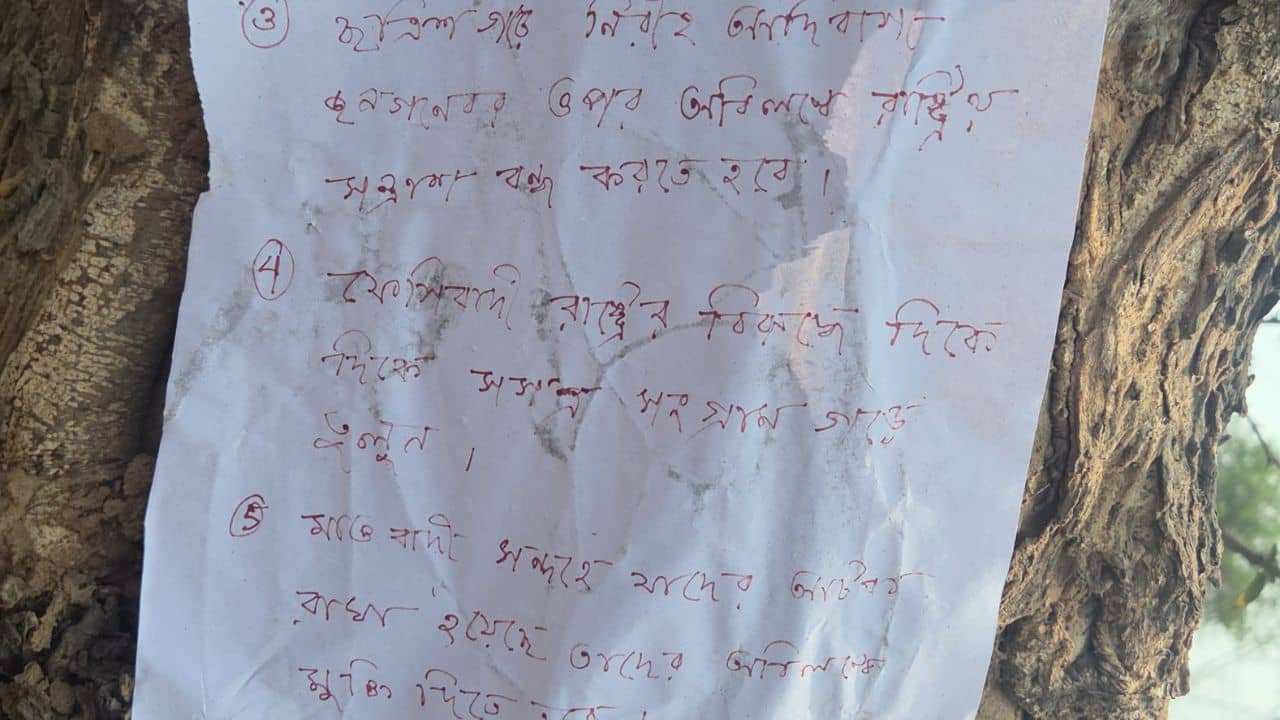 ③ ছত্রিশগড়ে নিরীহ আদিবাসী
জনগনের ওপর অবিলম্বে রাষ্ট্রীয়
সন্ত্রাস বন্ধ করতে হবে ।
④ ফ্যাসিবাদী রাষ্ট্রের বিরুদ্ধে দিকে
দিকে সসস্ত্র সংগ্রাম গড়ে
তুলুন ।
⑤ মাওবাদী সন্দেহে যাদের আটক
রাখা হয়েছে তাদের অবিলম্বে
মুক্তি দিতে হবে ।